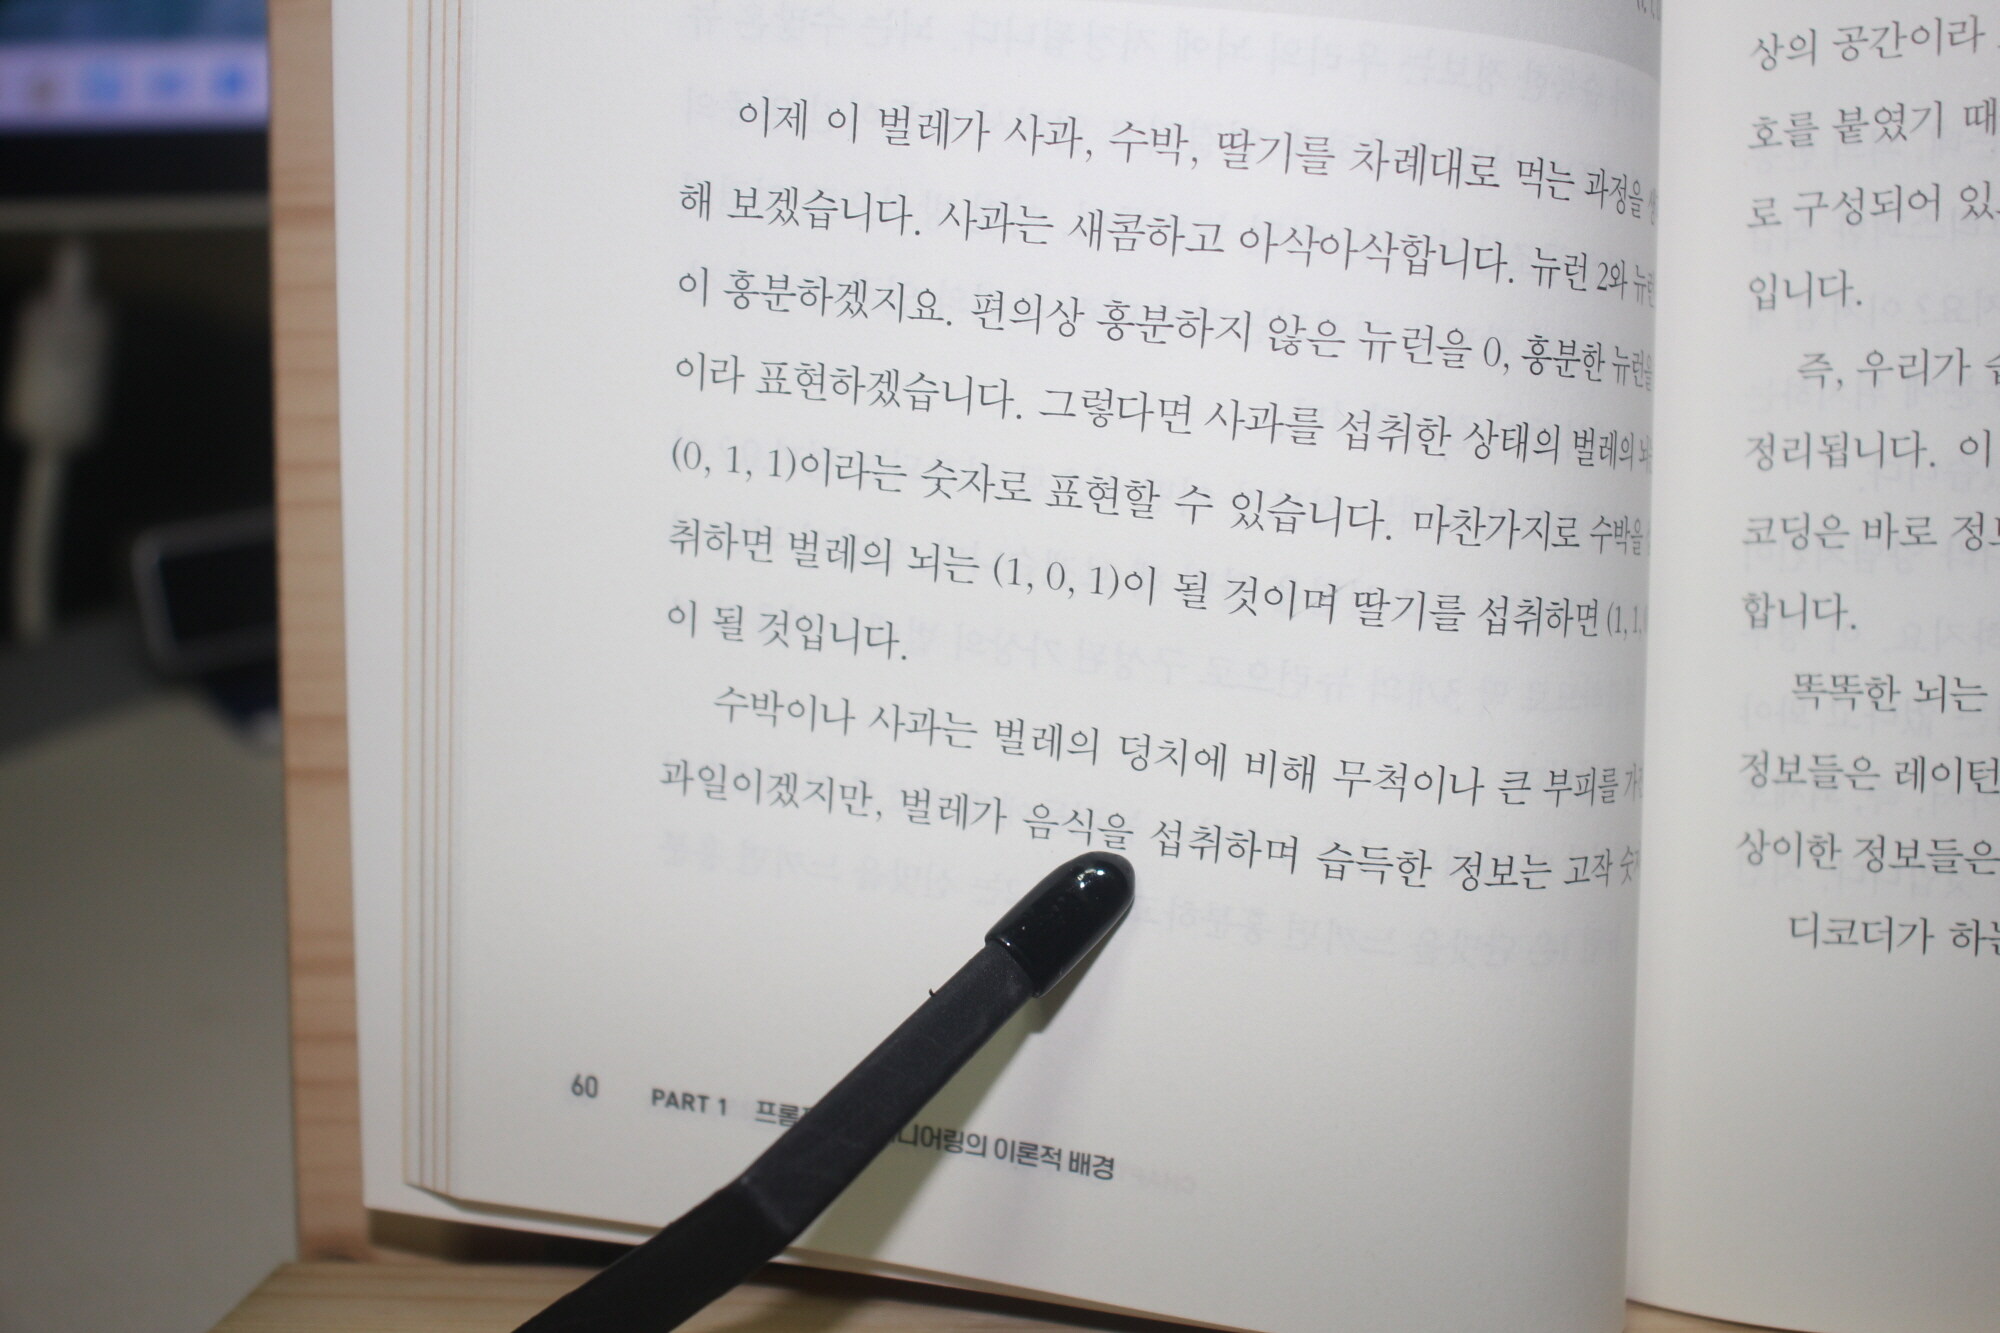 이제 이 벌레가 사과, 수박, 딸기를 차례대로 먹는 과정을
해 보겠습니다. 사과는 새콤하고 아삭아삭합니다. 뉴런 2와
이 흥분하겠지요. 편의상 흥분하지 않은 뉴런을 0, 흥분한 뉴런을
이라 표현하겠습니다. 그렇다면 사과를 섭취한 상태의 벌레의
(0, 1, 1)이라는 숫자로 표현할 수 있습니다. 마찬가지로 수박을
취하면 벌레의 뇌는 (1, 0, 1)이 될 것이며 딸기를 섭취하면 (1, 1,
이 될 것입니다.
수박이나 사과는 벌레의 덩치에 비해 무척이나 큰 부피를
과일이겠지만, 벌레가 음식을 섭취하며 습득한 정보는 고작
60 PART 1 이론적 배경
상의 공간이라
호를 붙였기
로 구성되어
입니다.
즉, 우리가
정리됩니다. 이
코딩은 바로
합니다.
똑똑한 뇌는
정보들은
상이한 정보들은
디코더가